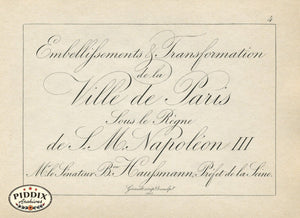 4
Embellissements & Transformation
de la
Ville de Paris
Sous le Règne
de S. M. Napoléon III
Mr. le Senateur Bon. Haussmann, Préfet de la Seine.
PIDDIX